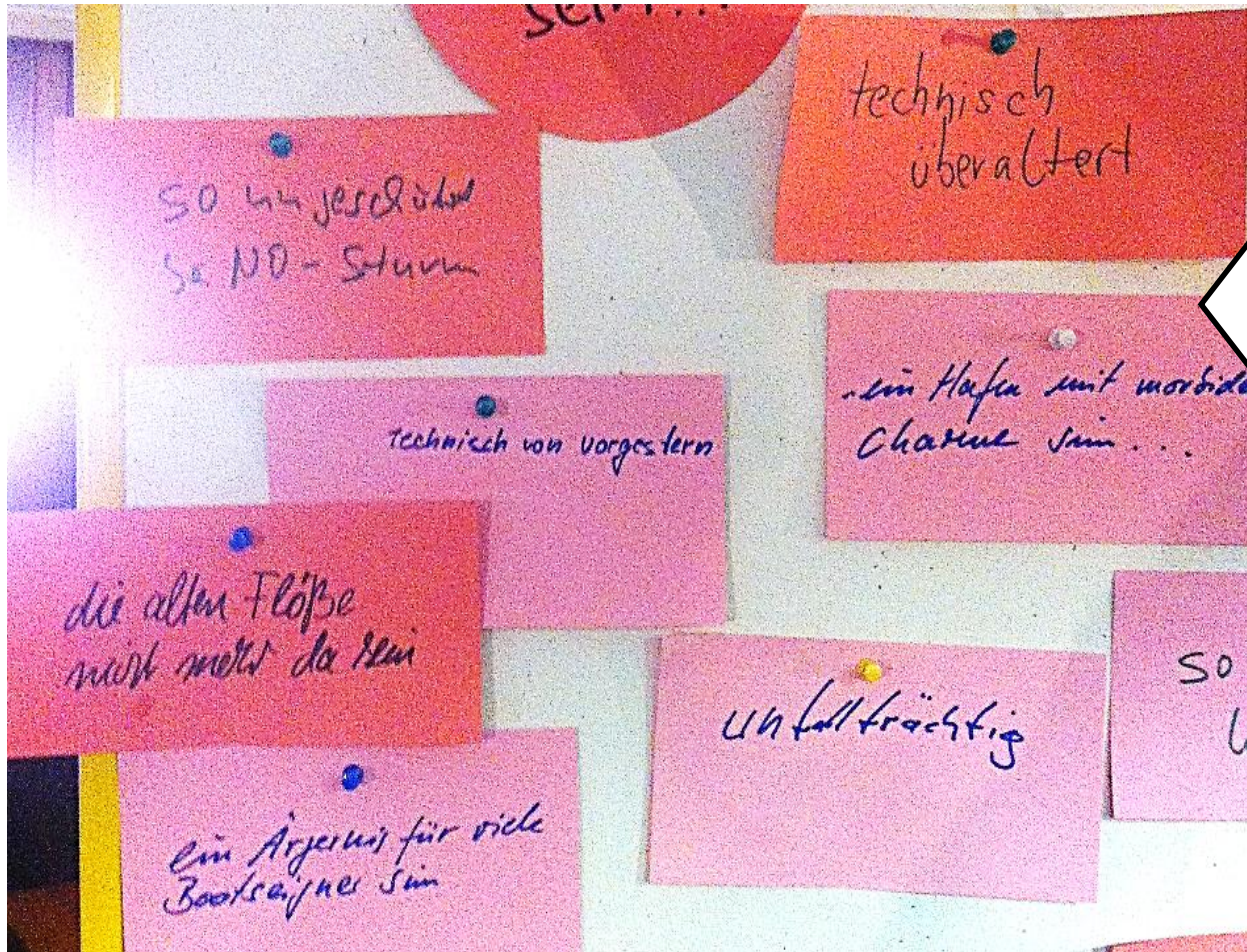 sein...
technisch
überaltert
so ungeschützt
bei NO-Sturm
...ein Hafen mit
Charme sein...
technisch von vorgestern
die alten Flöße
nicht mehr da sein
unfallträchtig
so
ein Ärgernis für viele
Bootseigner sein